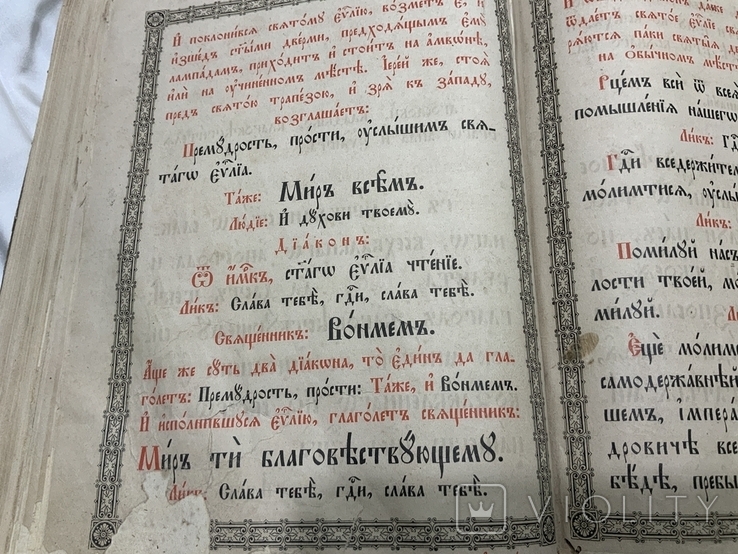 И҆ поклони́всѧ свѧто́му є҆ѵⷢ҇лїю, во́зметъ є҆̀, и҆
и҆зше́дъ ст҃ы́ми две́рми, предходѧ́щымъ є҆мꙋ̀
лампа́дамъ, прихо́дитъ и҆ стои́тъ на а҆мвѡ́нѣ,
и҆лѝ на ᲂу҆чине́нномъ мѣ́стѣ. І҆ере́й же, стоѧ̀
предъ свѧто́ю трапе́зою, и҆ зрѧ̀ къ за́падꙋ,
возглаша́етъ:
Премꙋ́дрость, про́сти, ᲂу҆слы́шимъ свѧ-
та́гѡ є҆ѵⷢ҇лїа.
Та́же: Ми́ръ всѣ̑мъ.
Лю́дїе: И҆ дꙋ́хови твоемꙋ̀.
Дїа́конъ:
Ѿ и҆́м҃къ, ст҃а́гѡ є҆ѵⷢ҇лїа чте́нїе.
Ли́къ: Сла́ва тебѣ̀, гдⷭ҇и, сла́ва тебѣ̀.
Свѧще́нникъ: Во́нмемъ.
А҆́ще же сꙋ́ть два̀ дїа́кѡна, то̀ є҆ди́нъ да гла-
го́летъ: Премꙋ́дрость, про́сти: Та́же, и҆ Во́нмемъ.
И҆ и҆спо́лнившꙋсѧ є҆ѵⷢ҇лїю, глаго́летъ свѧще́нникъ:
Ми́ръ тѝ благовѣствꙋ́ющемꙋ.
Ли́къ: Сла́ва тебѣ̀, гдⷭ҇и, сла́ва тебѣ̀.
ѿдае́тъ свѧто́е є҆ѵⷢ҇лїе,
рѧ́ютсѧ па́ки свѧты̑ѧ
на ѻ҆бы́чномъ мѣ́стѣ
Рце́мъ всѝ ѿ
помышле́нїѧ на́шегѡ
Ли́къ:
Гдⷭ҇и вседержи́телю
мо́лимтисѧ, ᲂу҆слы́ши
Ли́къ:
Поми́лꙋй на́съ
лости твое́й,
ми́лꙋй.
Є҆щѐ мо́лимсѧ
самодержа́внѣй
шемъ, і҆мпера
дровичѣ все
бѣ́дѣ, пребы
VIOLITY